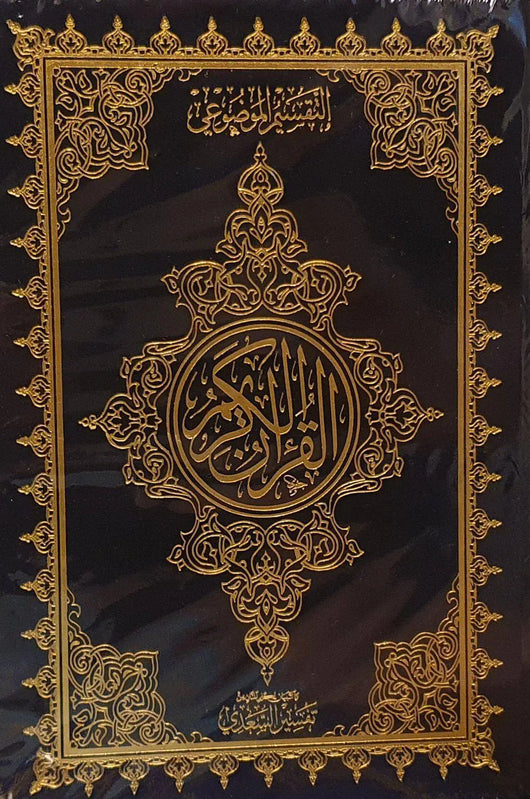 التفسير الموضوعي
القرءان الكريم
تفسير السعدي